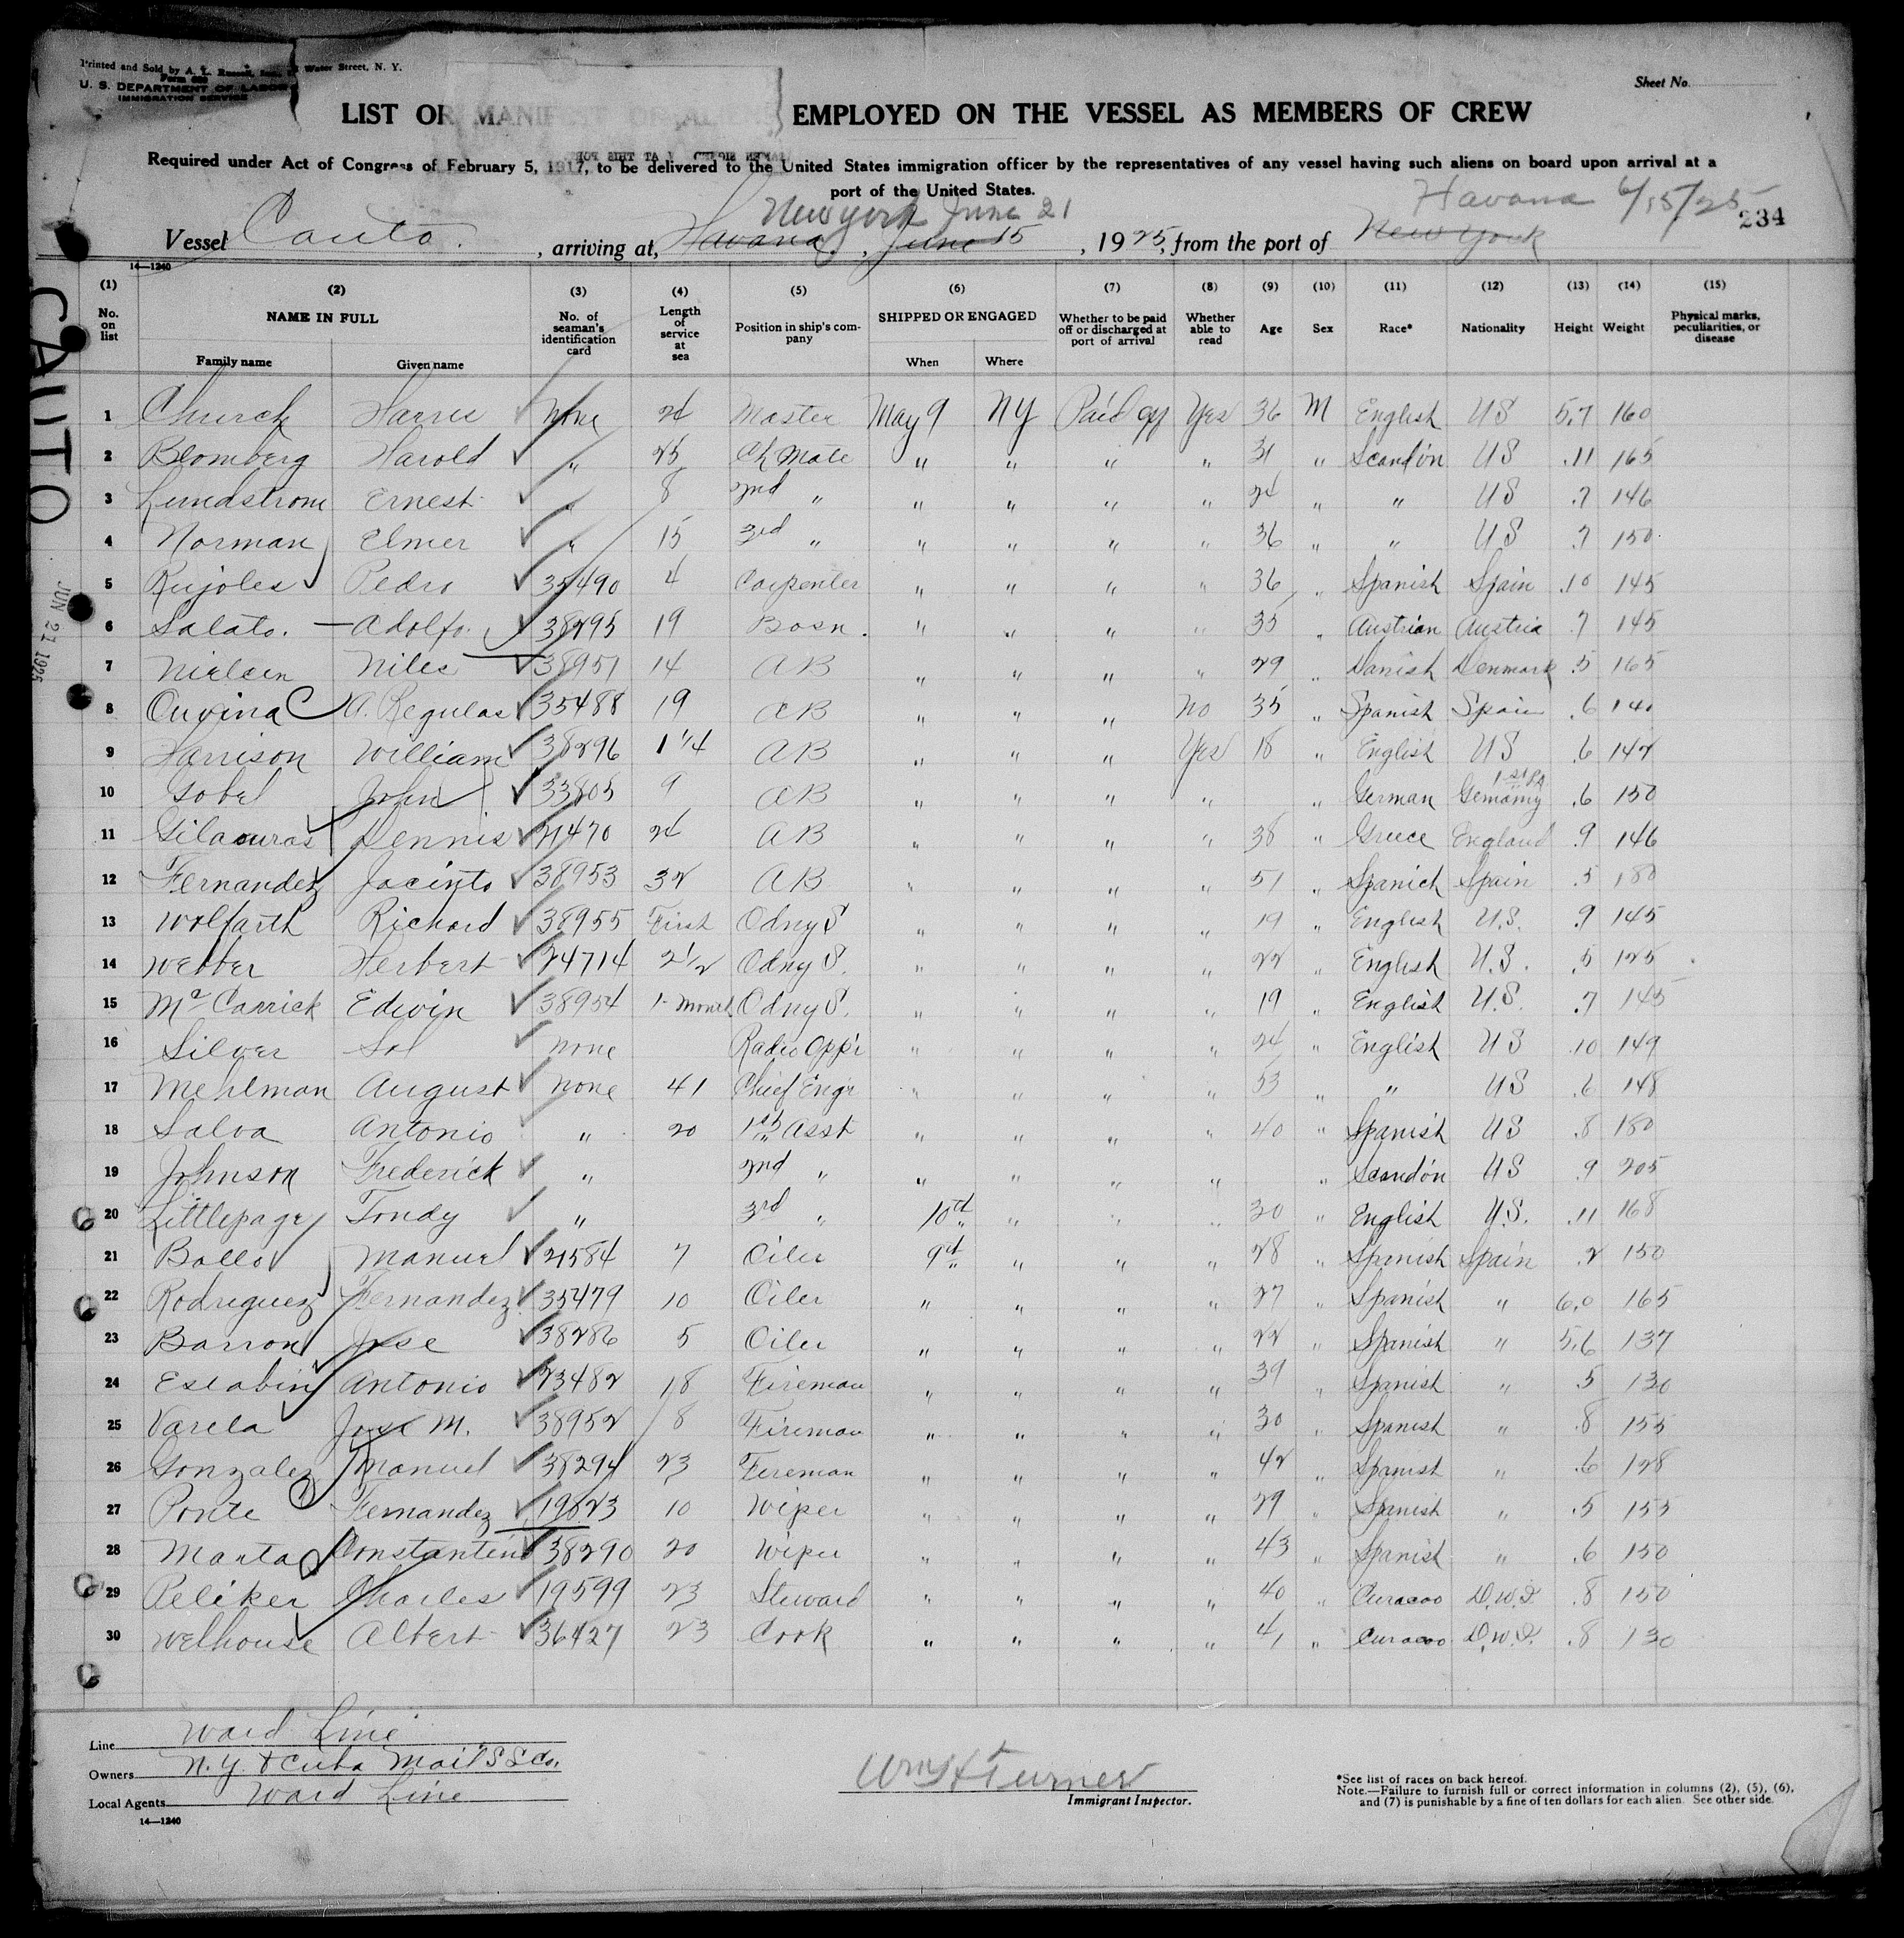 Printed and Sold by A. L. Russell, Inc., Water Street, N. Y.
Form 689
U. S. DEPARTMENT OF LABOR
IMMIGRATION SERVICE
Sheet No.
LIST OR MANIFEST OF ALIENS EMPLOYED ON THE VESSEL AS MEMBERS OF CREW
Required under Act of Congress of February 5, 1917, to be delivered to the United States immigration officer by the representatives of any vessel having such aliens on board upon arrival at a
port of the United States.
New York June 21 Havana 6/15/25
234
Vessel Cauto. , arriving at, Havana , June 15 , 1925, from the port of New York
14—1240
(1) (2) (3) (4) (5) (6) (7) (8) (9) (10) (11) (12) (13) (14) (15)
No. on list NAME IN FULL No. of seaman's identification card Length of service at sea Position in ship's company SHIPPED OR ENGAGED Whether to be paid off or discharged at port of arrival Whether able to read Age Sex Race* Nationality Height Weight Physical marks, peculiarities, or disease
Family name Given name When Where
1 Church Harris None 24 Master May 9 NY Paid off Yes 36 M English US 5.7 160
2 Blomberg Harold " 25 Ch Mate " " " " 31 " Scandin US .11 165
3 Lundstrom Ernest " 8 2nd " " " " " 24 " " US .7 146
4 Norman Elmer " 15 3rd " " " " " 36 " " US .7 150
5 Rujoles Pedro 35490 4 Carpenter " " " " 36 " Spanish Spain .10 145
6 Salato. Adolfo. 38295 19 Bosn. " " " " 35 " Austrian Austria .7 145
7 Nielsen Niles 38951 14 AB " " " " 29 " Danish Denmark .5 165
8 Ouvina A. Regulas 35488 19 AB " " " No 35 " Spanish Spain .6 140
9 Harrison William 38296 1 1/4 AB " " " Yes 18 " English US .6 142
10 Gobel John 33805 9 AB " " " " " German 1st pp Germany .6 150
11 Gilaouras Dennis 21470 24 AB " " " " 38 " Greece England .9 146
12 Fernandez Jacinto 38953 32 AB " " " " 51 " Spanish Spain .5 180
13 Wolfarth Richard 38955 First Odny S " " " " 19 " English U.S. .9 145
14 Webber Herbert 24714 2 1/2 Odny S. " " " " 22 " English U.S. .5 125
15 McCarrick Edwin 38954 1 month Odny S. " " " " 19 " English U.S. .7 145
16 Silver Sol none Radio Opp'r " " " " 24 " English US .10 149
17 Mehlman August none 41 Chief Eng'r " " " " 53 " " US .6 148
18 Salva Antonio " 20 1st Asst " " " " 40 " Spanish US .8 180
19 Johnson Frederick " 2nd " " " " " " Scandin US .9 205
20 Littlepage Tondy " 3rd " 10th " " " 30 " English U.S. .11 168
21 Ballo Manuel 21584 7 Oiler 9th " " " 28 " Spanish Spain .2 150
22 Rodriguez Fernandez 35479 10 Oiler " " " " 27 " Spanish " 6.0 165
23 Barron Jose 38286 5 Oiler " " " " 22 " Spanish " 5.6 137
24 Escabin Antonio 23482 18 Fireman " " " " 39 " Spanish " .5 130
25 Varela Jose M. 38952 8 Fireman " " " " 30 " Spanish " .8 155
26 Gonzalez Manuel 38294 23 Fireman " " " " 42 " Spanish " .6 128
27 Ponte Fernandez 19823 10 Wiper " " " " 29 " Spanish " .5 155
28 Manta Constantin 38290 20 Wiper " " " " 43 " Spanish " .6 150
29 Peliker Charles 19599 23 Steward " " " " 40 " Curacao D.W.I. .8 150
30 Welhouse Albert 36427 23 Cook " " " " 41 " Curacao D.W.I. .8 130
CAUTO
JUN 21 1925
Line Ward Line
Owners N.Y. & Cuba Mail S S Co.
Local Agents Ward Line
14—1240
Wm H Turner
Immigrant Inspector.
*See list of races on back hereof.
Note.—Failure to furnish full or correct information in columns (2), (5), (6),
and (7) is punishable by a fine of ten dollars for each alien. See other side.